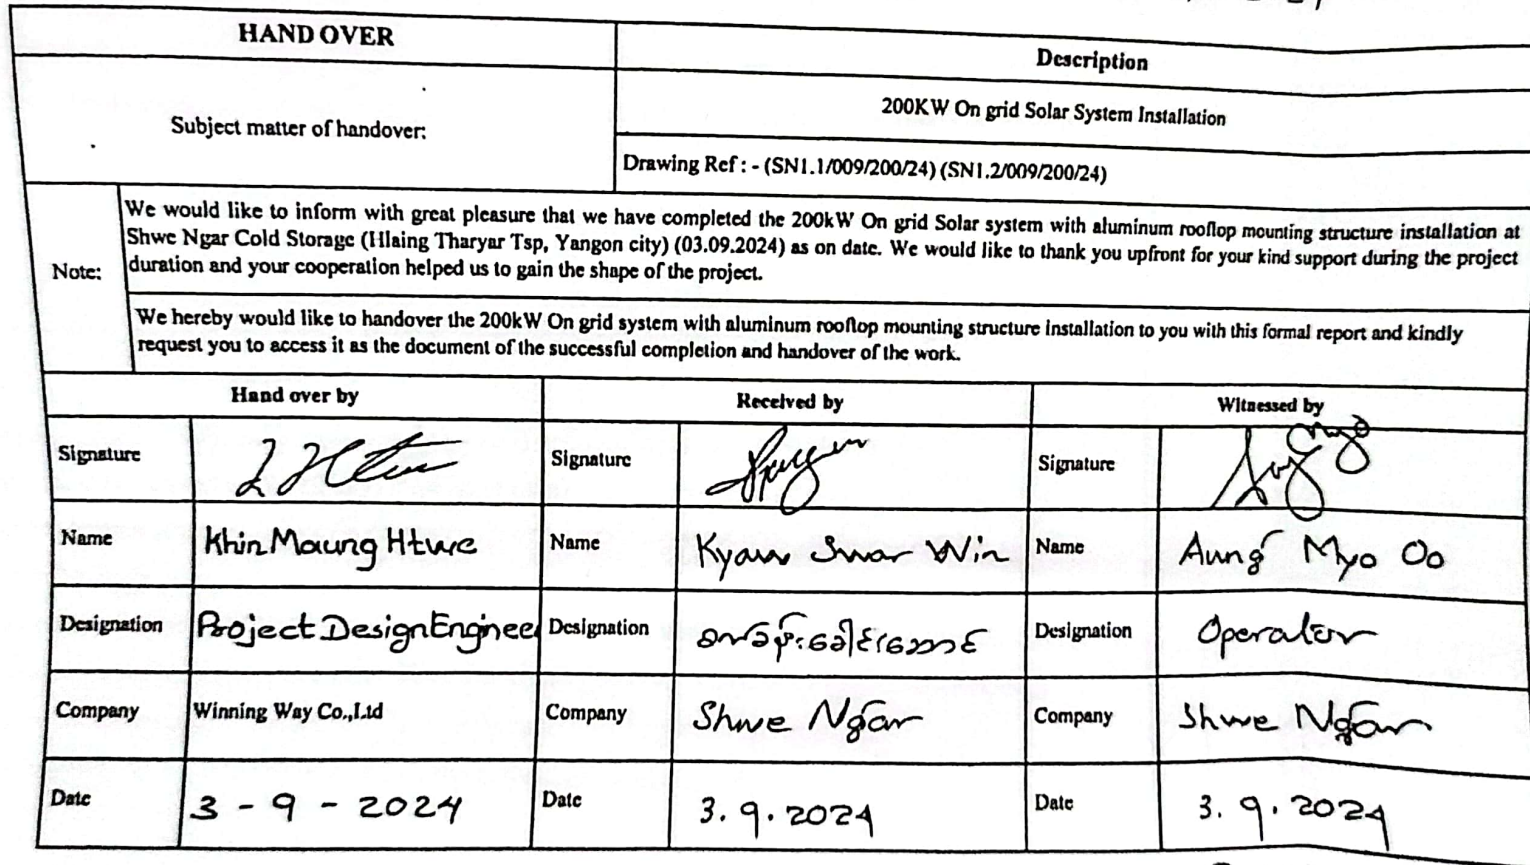 HAND OVER
Description
Subject matter of handover:
200KW On grid Solar System Installation
Drawing Ref : - (SN1.1/009/200/24) (SN1.2/009/200/24)
Note:
We would like to inform with great pleasure that we have completed the 200kW On grid Solar system with aluminum rooftop mounting structure installation at
Shwe Ngar Cold Storage (Hlaing Tharyar Tsp, Yangon city) (03.09.2024) as on date. We would like to thank you upfront for your kind support during the project
duration and your cooperation helped us to gain the shape of the project.
We hereby would like to handover the 200kW On grid system with aluminum rooftop mounting structure installation to you with this formal report and kindly
request you to access it as the document of the successful completion and handover of the work.
Hand over by
Received by
Witnessed by
Signature
Signature
Signature
Name
Khin Maung Htwe
Name
Kyaw Swar Win
Name
Aung Myo Oo
Designation
Project Design Enginee
Designation
Designation
Operator
Company
Winning Way Co.,Ltd
Company
Shwe Ngar
Company
Shwe Ngar
Date
3 - 9 - 2024
Date
3. 9. 2024
Date
3. 9. 2024